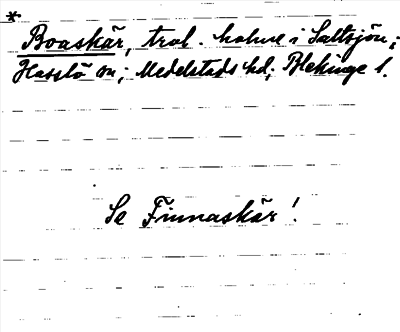 * Boaskär, trol. holme i Saltsjön;
Hasslö sn; Medelstads hd; Blekinge l.
Se Finnaskär!